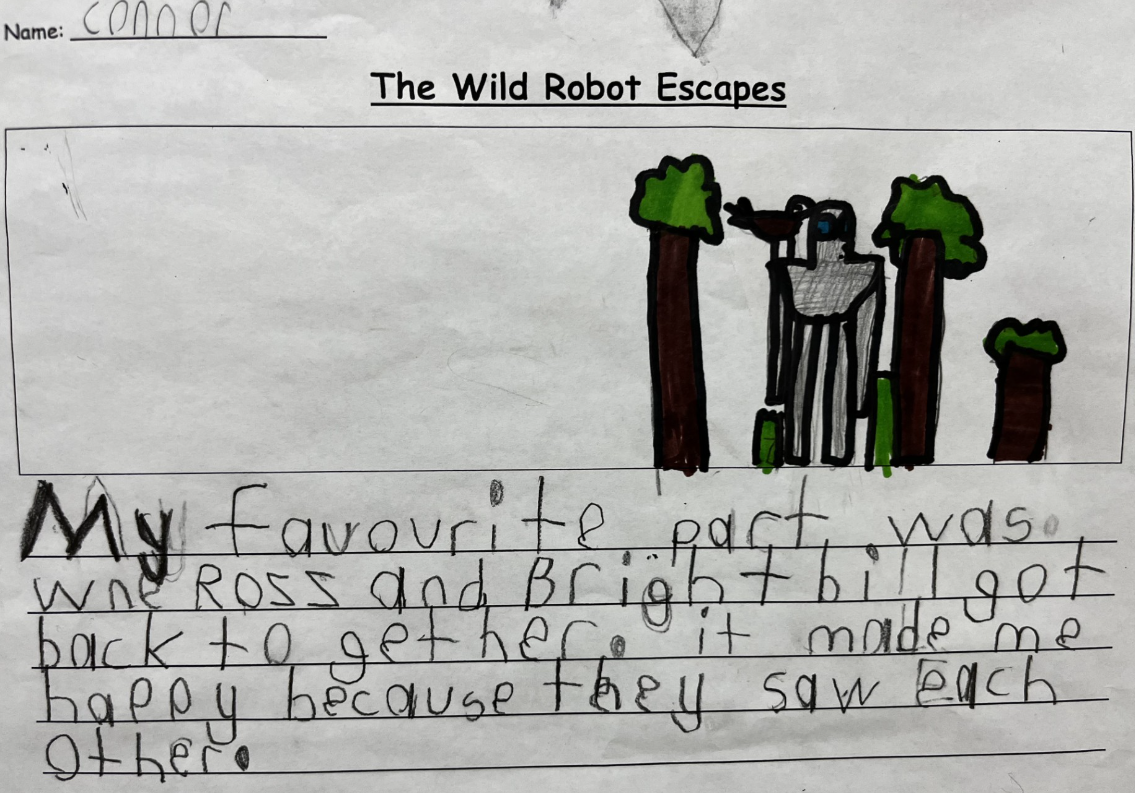 Name: Connor
The Wild Robot Escapes
My favourite part was
wne Ross and Brightbill got
back together. it made me
happy because they saw Each
Other.